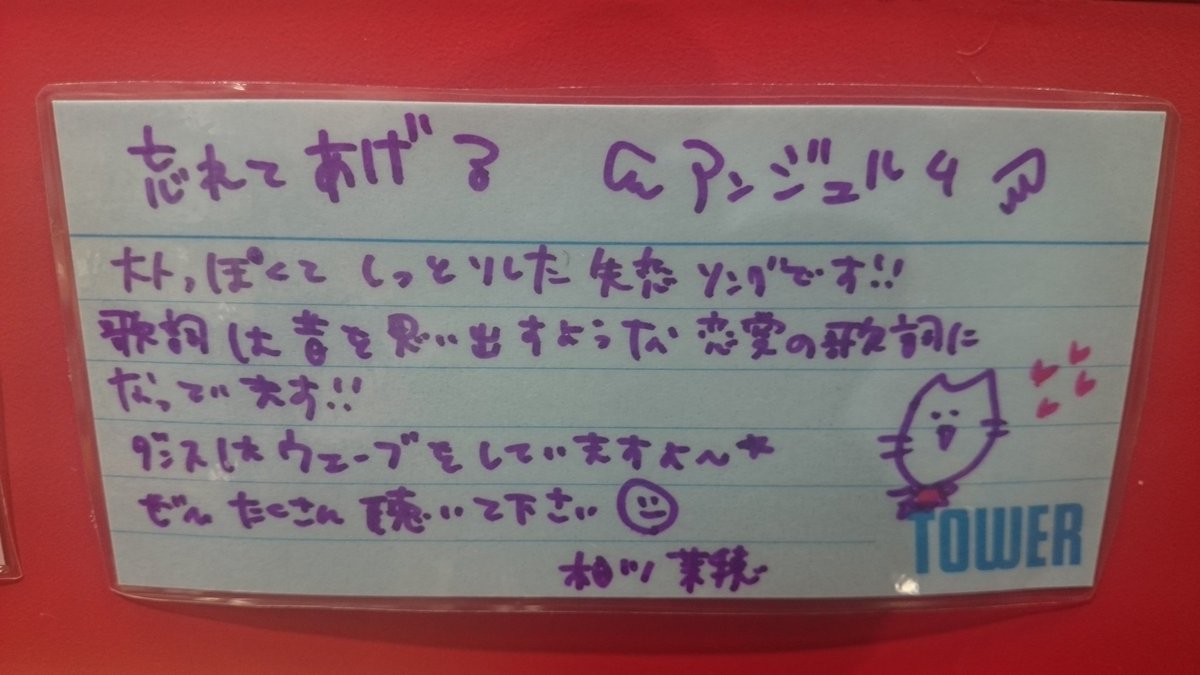 忘れてあげる アンジュルム
大人っぽくて しっとりした 失恋ソングです!!
歌詞は昔を思い出すような恋愛の歌詞に
なってます!!
ダンスはウェーブをしていますよ〜★
ぜひ たくさん 聴いて下さい
相川茉穂
TOWER